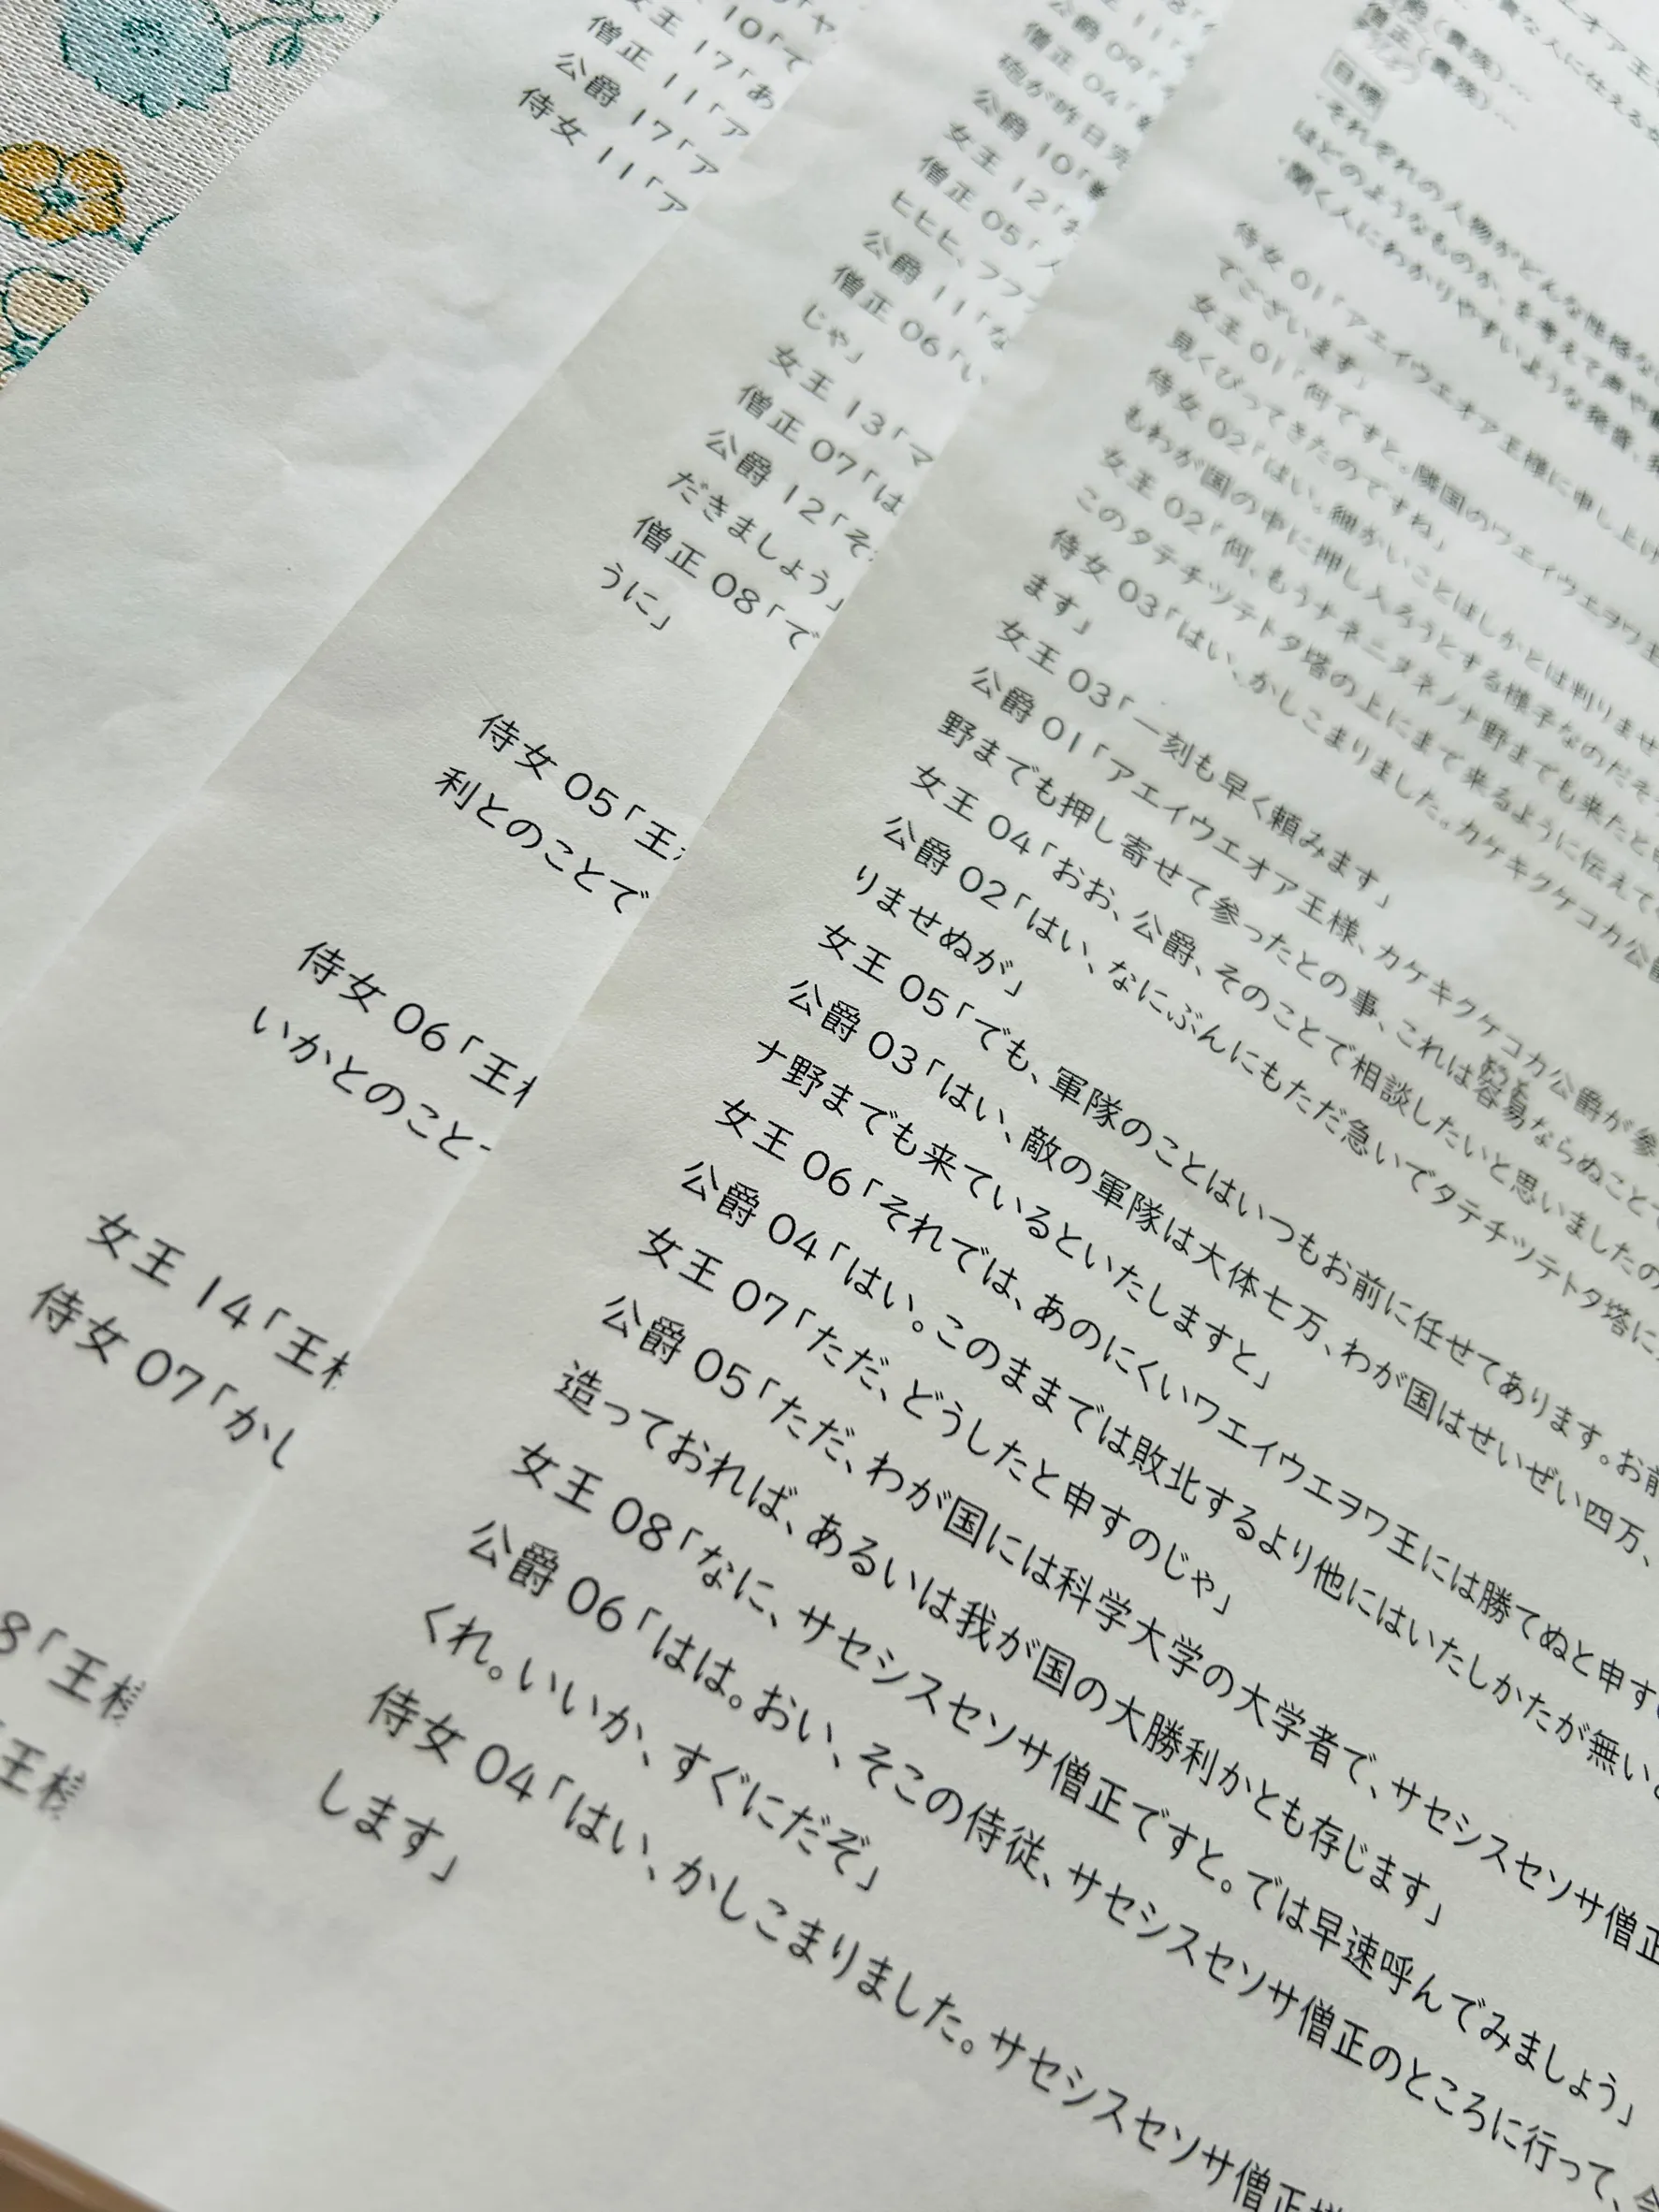 目標
・それぞれの人物がどんな性格な
はどのようなものか、を考えて声や
・聞く人にわかりやすいような発音、
侍女 01「アエイウエオア王様に申し上げ
でございます」
女王 01「何ですと。隣国のワエイウエヲワ王
見くびってきたのですね」
侍女 02「はい。細かいことはしかとは判りませ
もわが国の中に押し入ろうとする様子なのだそ
女王 02「何、もうナネニヌネノナ野までも来たと
このタテチツテトタ塔の上にまで来るように伝えて
侍女 03「はい、かしこまりました。カケキクケコカ公爵
ます」
女王 03「一刻も早く頼みます」
公爵 01「アエイウエオア王様、カケキクケコカ公爵が参
野までも押し寄せて参ったとの事、これは容易ならぬことで
女王 04「おお、公爵、そのことで相談したいと思いましたの
公爵 02「はい、なにぶんにもただ急いでタテチツテトタ塔に
りませぬが」
女王 05「でも、軍隊のことはいつもお前に任せてあります。お前
公爵 03「はい、敵の軍隊は大体七万、わが国はせいぜい四万、
ナ野までも来ているといたしますと」
女王 06「それでは、あのにくいワエイウエヲワ王には勝てぬと申す
公爵 04「はい。このままでは敗北するより他にはいたしかたが無い
女王 07「ただ、どうしたと申すのじゃ」
公爵 05「ただ、わが国には科学大学の大学者で、サセシスセソサ僧正
造っておれば、あるいは我が国の大勝利かとも存じます」
女王 08「なに、サセシスセソサ僧正ですと。では早速呼んでみましょう」
公爵 06「はは。おい、そこの侍従、サセシスセソサ僧正のところに行って、
くれ。いいか、すぐにだぞ」
侍女 04「はい、かしこまりました。サセシスセソサ僧正
します」
公爵 09「
僧正 04「
砲が昨日完
公爵 10「
女王 12「
僧正 05「
ヒヒヒ、フフ
公爵 11「な
僧正 06「い
じゃ」
女王 13「マ
僧正 07「は
公爵 12「そ
だきましょう」
僧正 08「で
うに」
侍女 05「王
利とのことで
侍女 06「王
いかとのこと
女王 14「王
侍女 07「かし
8「王様
王様
10「て
女王 17「あ
僧正 11「ア
公爵 17「ア
侍女 11「ア